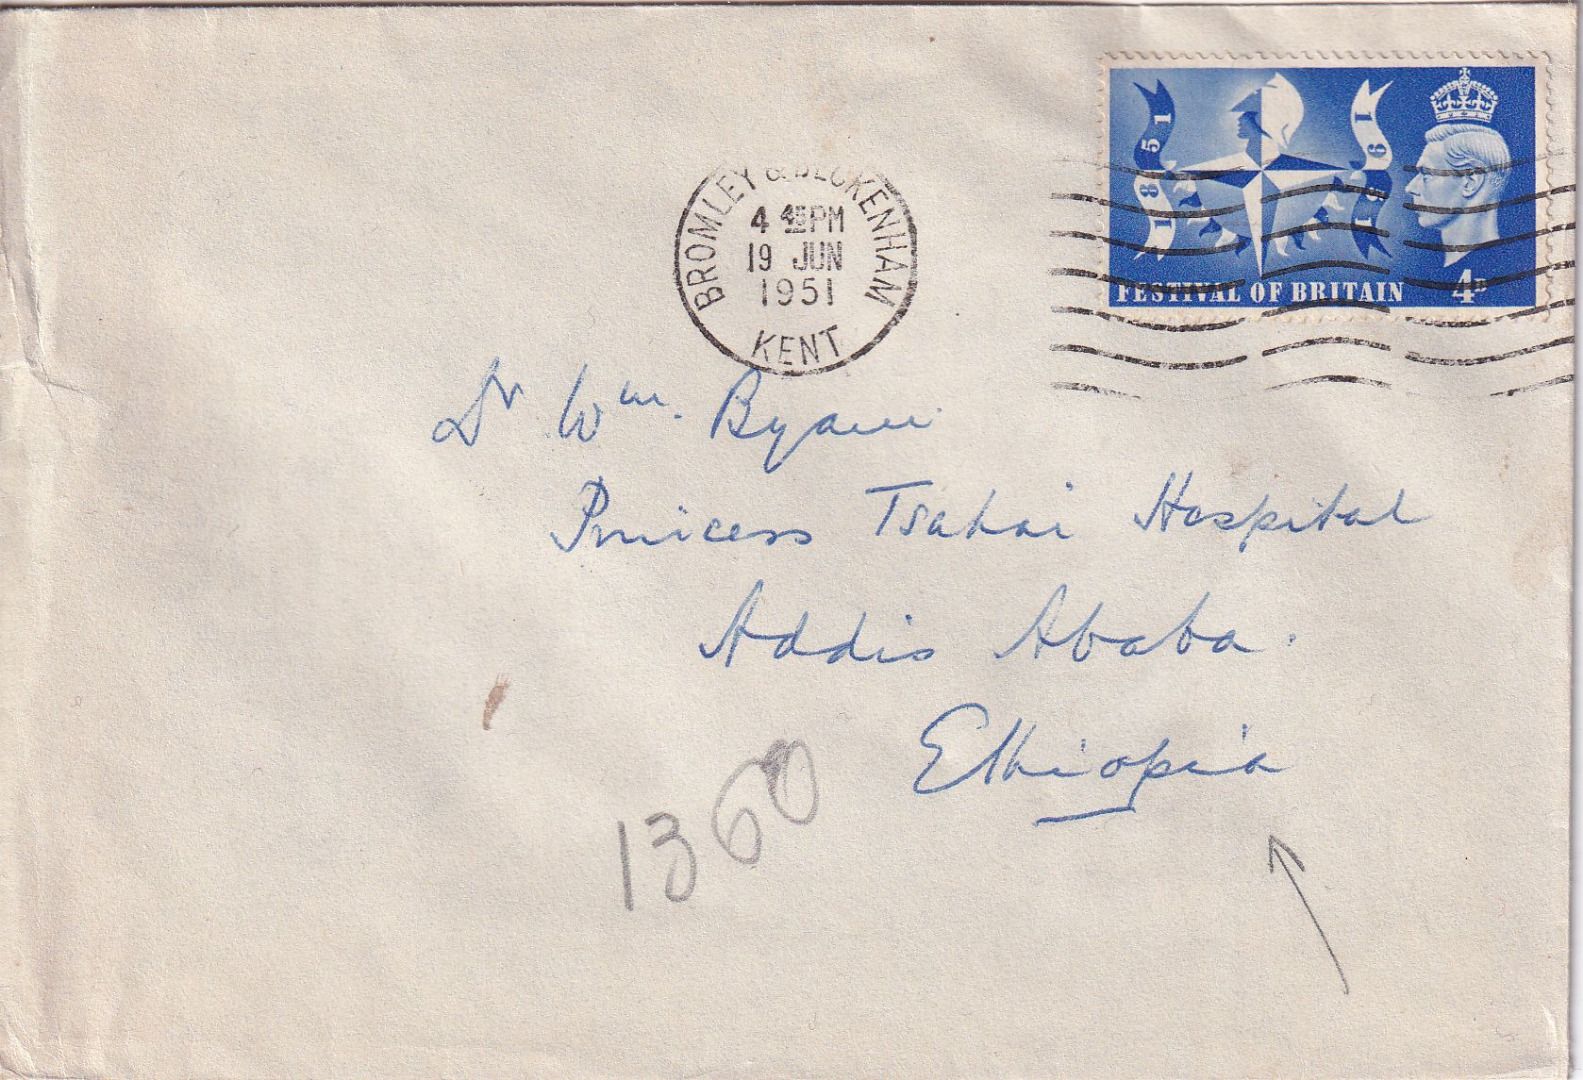 1851
1951
FESTIVAL OF BRITAIN 4D
BROMLEY & BECKENHAM
4 45PM
19 JUN
1951
KENT
Dr Wm. Byam
Princess Tsahai Hospital
Addis Ababa.
Ethiopia
1360